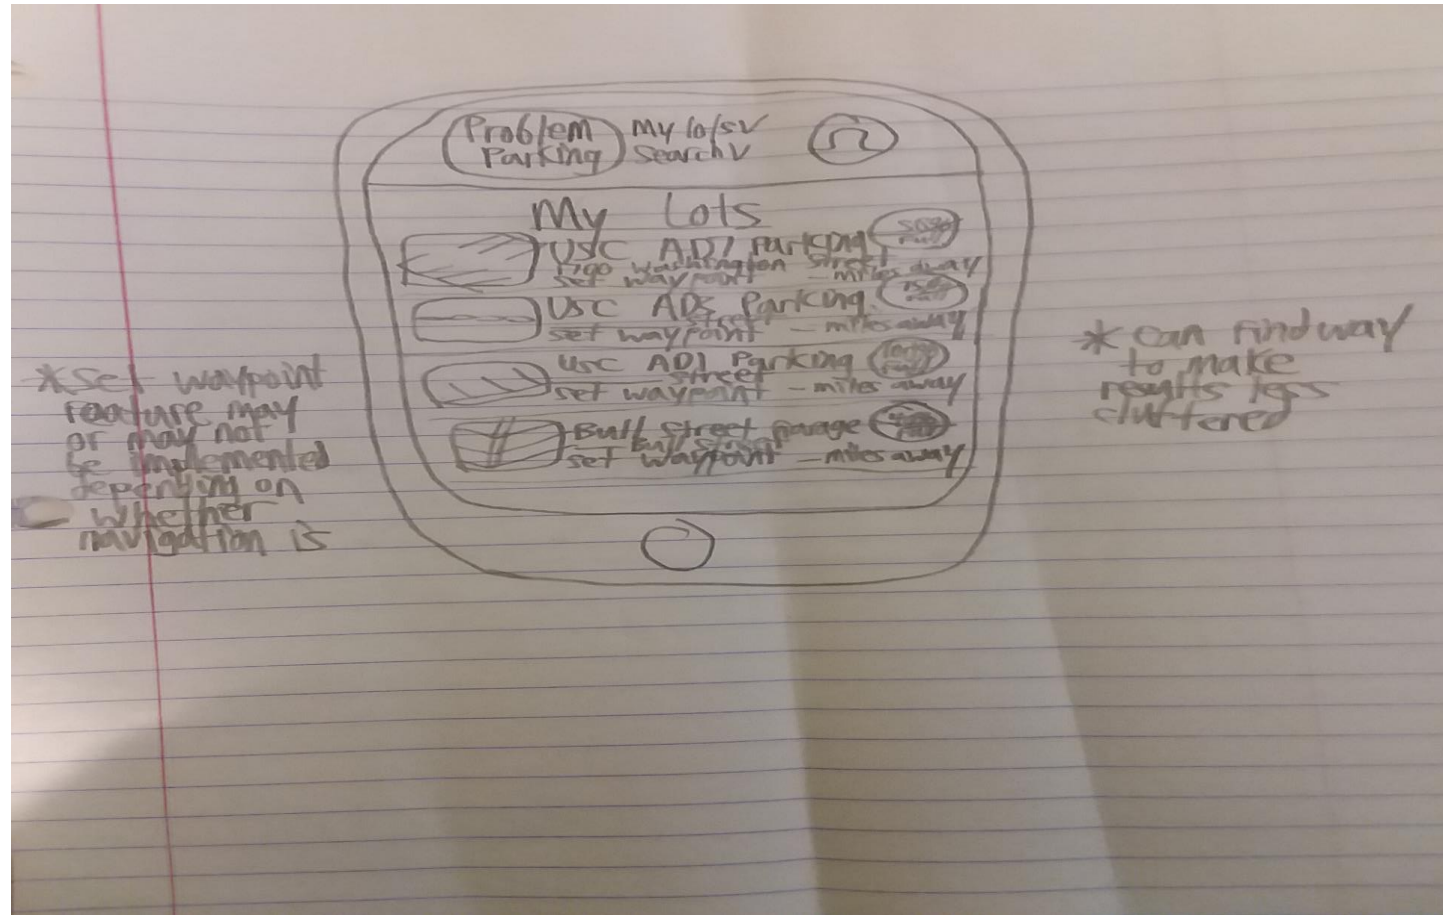 Problem
Parking
My lots v
Search v
My Lots
USC AD1 Parking
Washington Street
set waypoint miles away
USC AD5 Parking
Street
set waypoint - miles away
USC AD1 Parking
Street
set waypoint - miles away
Bull Street Garage
Bull Street
set waypoint - miles away
* set waypoint
feature may
or may not
be implemented
depending on
whether
navigation is
* can find way
to make
results less
cluttered